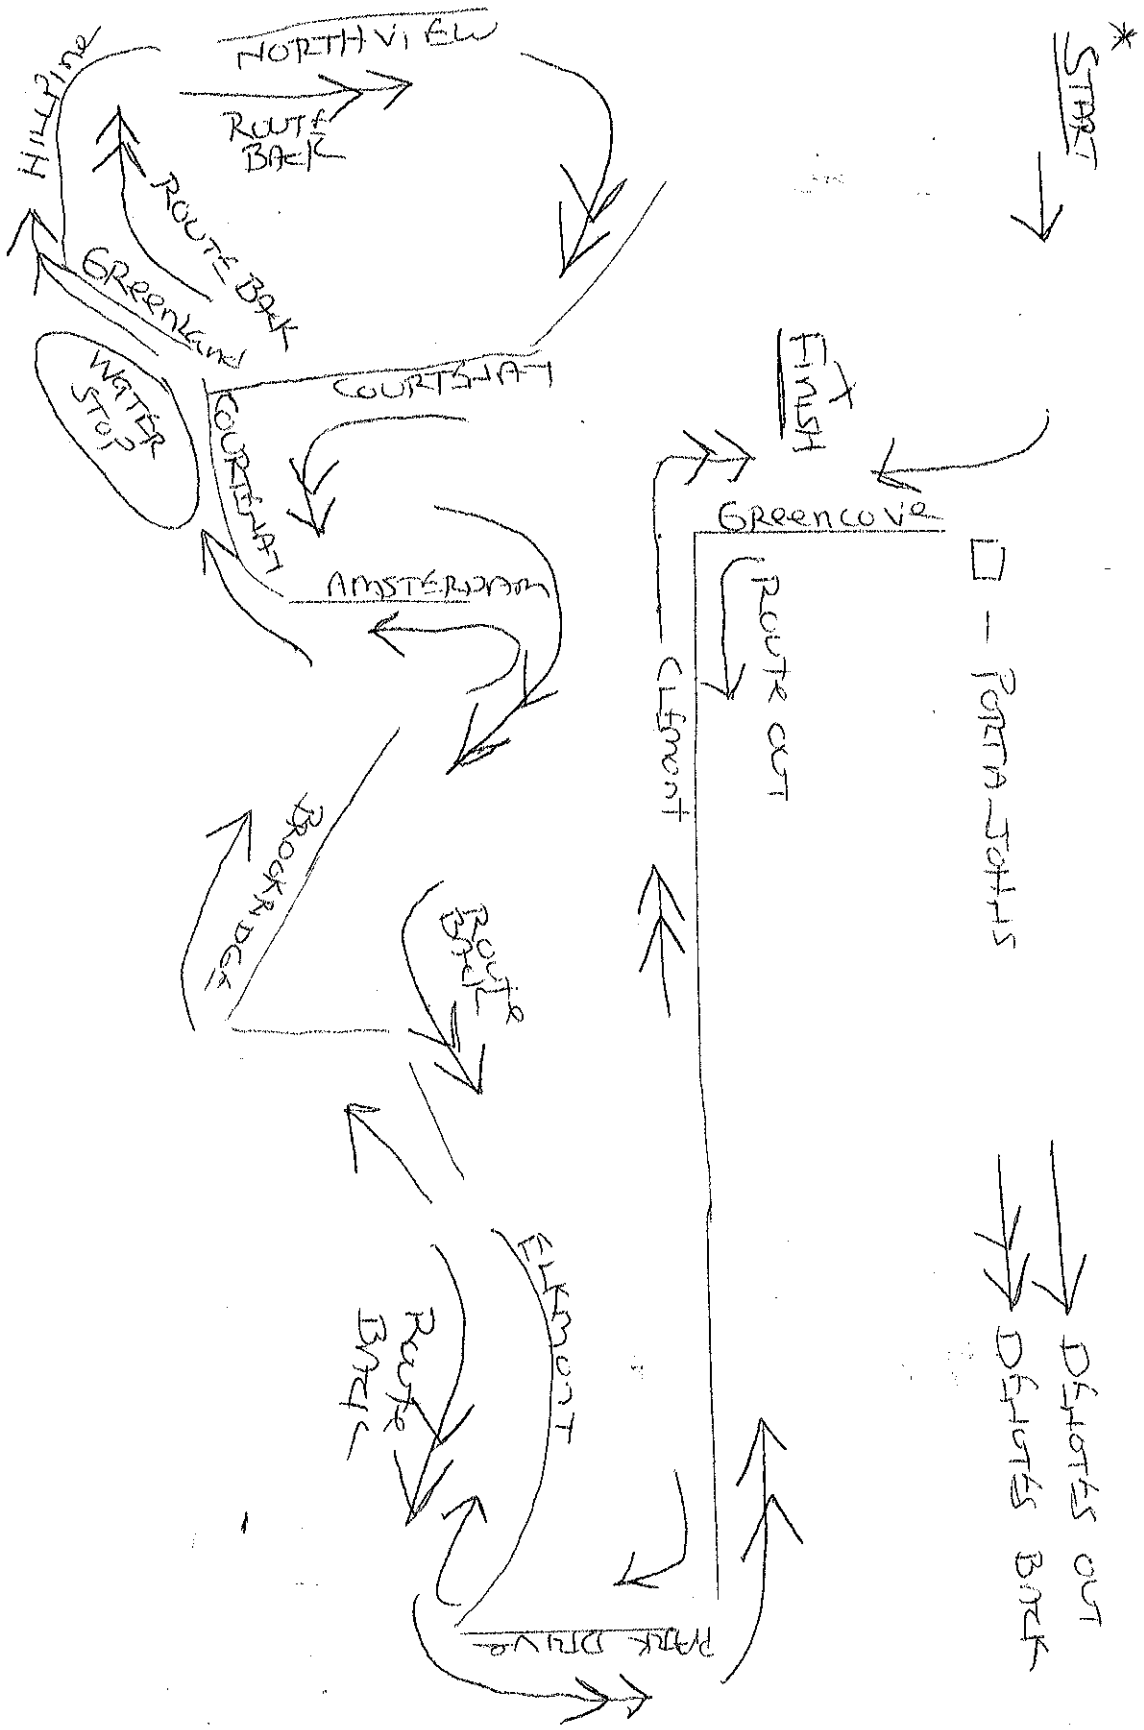 * START
FINISH
X
GReencove
□ - PORTA-JOHNS
ROUTE OUT
CLEmonT
DENOTES OUT
DENOTES BACK
PARK DRIVe
ELKmonT
ROUTe
BACK
ROUTe
BACK
BROCKRIDGE
AMSTERDAm
COURTENAY
COURTENAY
WATER
STOP
GReenLand
ROUTE BACK
HILLPine
NORTHVIEW
ROUTE
BACK